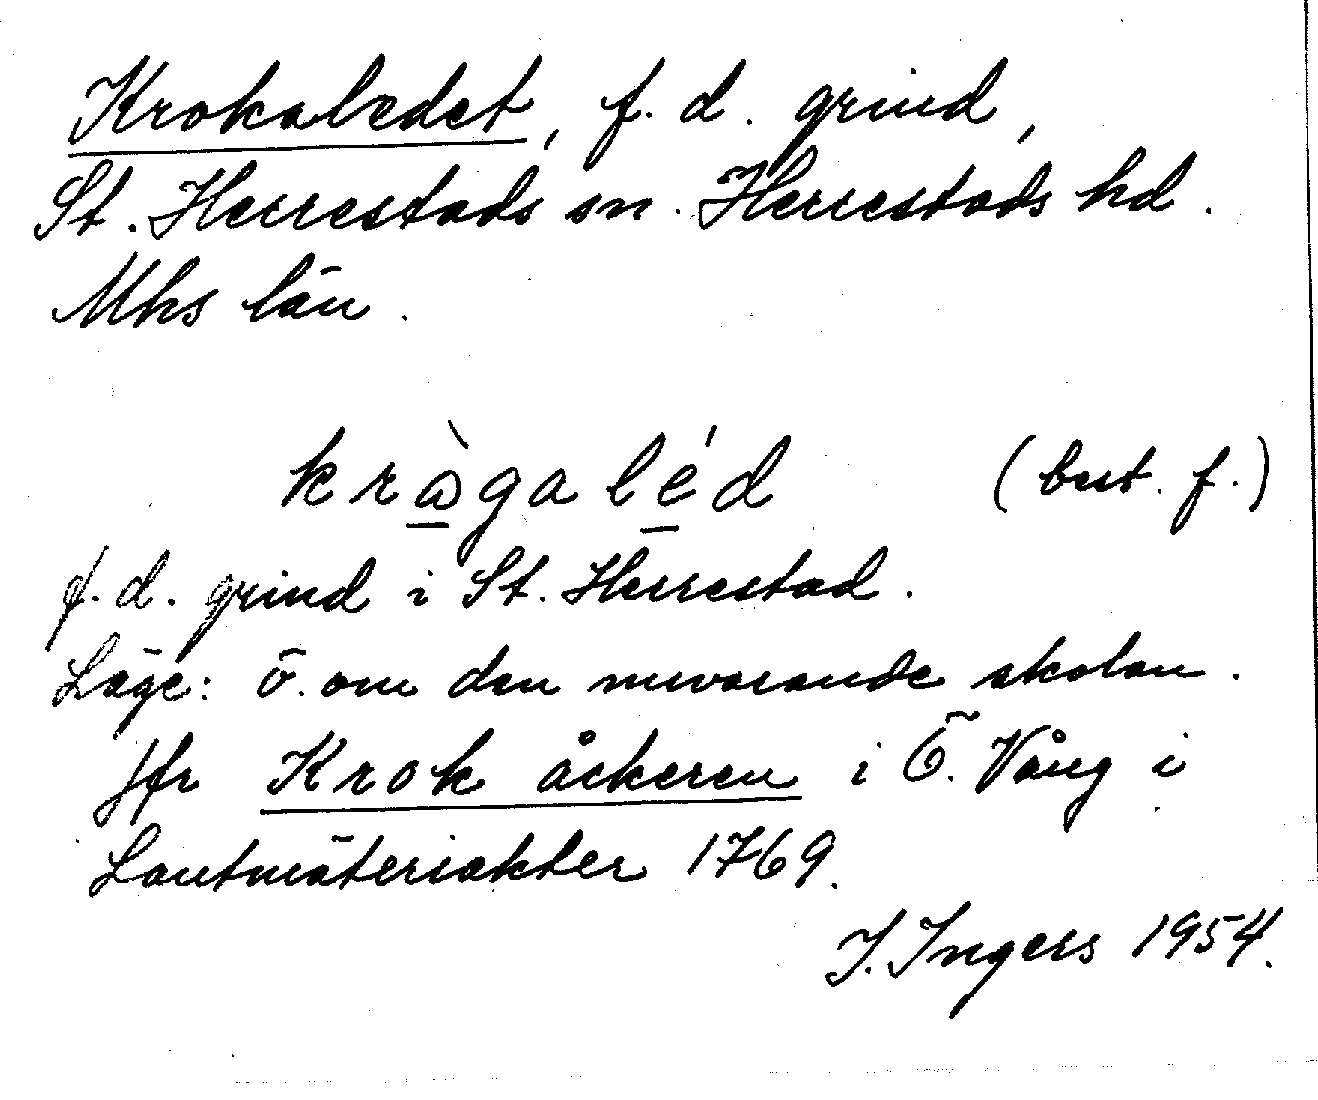 Krokaledet, f. d. grind,
St. Herrestads sn. Herrestads hd.
Mhs län.
kràgaléd (best. f.)
f. d. grind i St. Herrestad.
Läge: ö. om den nuvarande skolan.
Jfr Krok åckeren i Ö. Vång i
Lantmäteriakter 1769.
I. Ingers 1954.